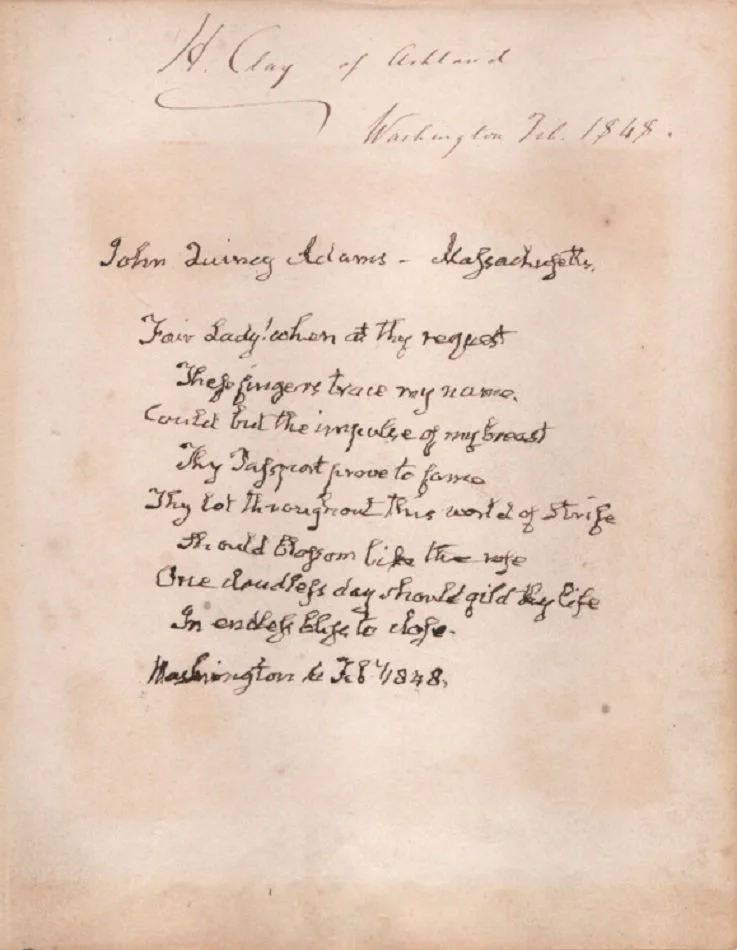 H. Clay of Ashland
Washington Feb. 1848.
John Quincy Adams - Massachusetts.
Fair Lady! when at thy request
These fingers trace my name.
Could but the impulse of my breast
Thy Passport prove to fame
Thy lot throughout this world of Strife
Should blossom like the rose
One cloudless day should gild thy life
In endless bliss to close.
Washington Feby 1848.